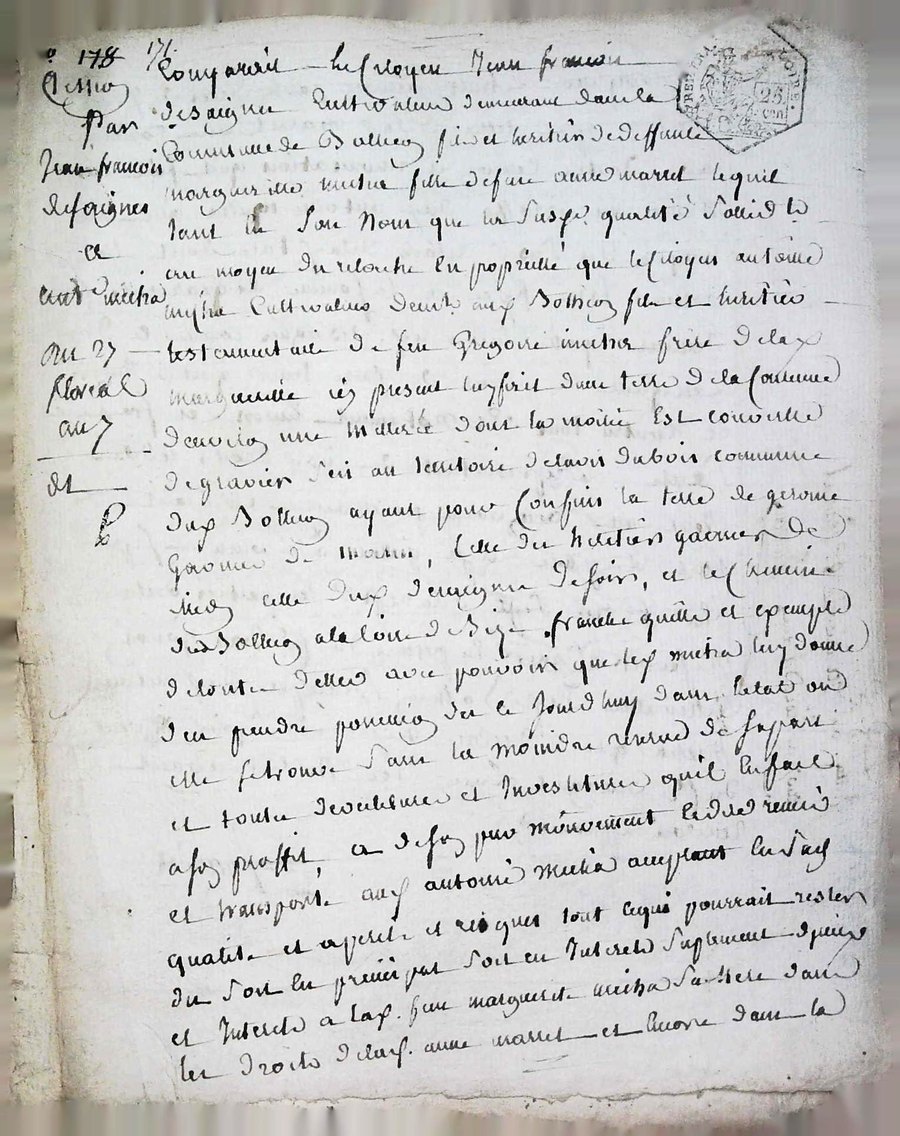 178 171.
Cession
Par
Jean francois
desaignes
et
ant mitra
du 27
floreal
an 7
dt
25
cen
Comparait le Citoyen Jean francois
desaignes Cultivateur demeurant dans la
Commune de Bollieu fils et heritier de deffunte
margueritte mitra fille de feue anne marret lequel
tant en son Nom que en susd. qualité
au moyen du relache en proprietté que le Citoyen antoine
mitra Cultivateur demt. aux Bollieu fils et heritier
testamentaire de feu Gregoire mitra frere de lad
marguerite icy present luy fait d'une terre de la Contenue
denviron une dont la moitié Est couverte
de gravier Scis au territoire du bois commune
dud Bollieu ayant pour Confins la terre de gerome
Garnier de , Celle des heritiers garnier de
midy celle dud desaigne de soir, et le Chemin
de Bollieu a la loire de Bize franche quitte et exempte
de toute dettes avec pouvoir que led mitra luy donne
d'en prendre pocession des ce Jourdhuy dans letat ou
elle se trouve sans la moindre reserve de sa part
et toute et Investiture quil en fait
a son proffit, a de son pur mouvement cedde remis
et transporte aud antoine mitra acceptant en sad
qualité et a perte et risques tout ce qui pourrait rester
du soit en principal soit en Interets suplement
et Interets a lad. feue marguerite mitra sa mere dans
les droits de lad. anne marret et Encore dans la